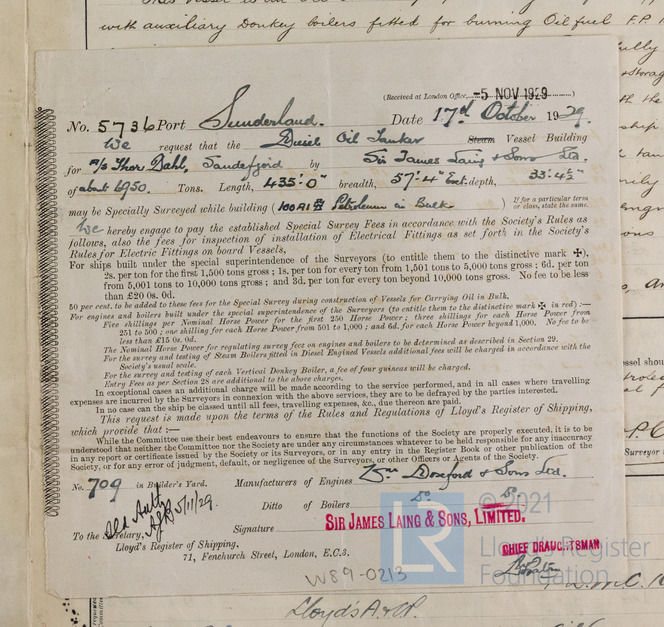 with auxiliary Donkey boilers fitted for burning Oil fuel F.P.
(Received at London Office, -5 NOV 1929)
No. 5736 Port Sunderland. Date 17th October 1929.
We request that the Diesel Oil Tanker Steam Vessel Building
for A/S Thor Dahl, Sandefjord by Sir James Laing & Sons Ltd.
of about 6950. Tons. Length, 435'-0" breadth, 57'-4" Ext. depth, 33'-4½"
may be Specially Surveyed while building (100A1 ✠ Petroleum in Bulk ) If for a particular term or class, state the same.
We hereby engage to pay the established Special Survey Fees in accordance with the Society's Rules as
follows, also the fees for inspection of installation of Electrical Fittings as set forth in the Society's
Rules for Electric Fittings on board Vessels,
For ships built under the special superintendence of the Surveyors (to entitle them to the distinctive mark ✠).
2s. per ton for the first 1,500 tons gross ; 1s. per ton for every ton from 1,501 tons to 5,000 tons gross ; 6d. per ton
from 5,001 tons to 10,000 tons gross ; and 3d. per ton for every ton beyond 10,000 tons gross. No fee to be less
than £20 0s. 0d.
50 per cent. to be added to these fees for the Special Survey during construction of Vessels for Carrying Oil in Bulk.
For engines and boilers built under the special superintendence of the Surveyors (to entitle them to the distinctive mark ✠ in red) :—
Five shillings per Nominal Horse Power for the first 250 Horse Power ; three shillings for each Horse Power from
251 to 500 ; one shilling for each Horse Power from 501 to 1,000 ; and 6d. for each Horse Power beyond 1,000. No fee to be
less than £15 0s. 0d.
The Nominal Horse Power for regulating survey fees on engines and boilers to be determined as described in Section 29.
For the survey and testing of Steam Boilers fitted in Diesel Engined Vessels additional fees will be charged in accordance with the
Society's usual scale.
For the survey and testing of each Vertical Donkey Boiler, a fee of four guineas will be charged.
Entry Fees as per Section 28 are additional to the above charges.
In exceptional cases an additional charge will be made according to the service performed, and in all cases where travelling
expenses are incurred by the Surveyors in connexion with the above services, they are to be defrayed by the parties interested.
In no case can the ship be classed until all fees, travelling expenses, &c., due thereon are paid.
This request is made upon the terms of the Rules and Regulations of Lloyd's Register of Shipping,
which provide that :—
While the Committee use their best endeavours to ensure that the functions of the Society are properly executed, it is to be
understood that neither the Committee nor the Society are under any circumstances whatever to be held responsible for any inaccuracy
in any report or certificate issued by the Society or its Surveyors, or in any entry in the Register Book or other publication of the
Society, or for any error of judgment, default, or negligence of the Surveyors, or other Officers or Agents of the Society.
No. 709 in Builder's Yard. Manufacturers of Engines Wm Doxford & Sons Ltd.
Ditto of Boilers do do
5/11/29.
Signature SIR JAMES LAING & SONS, LIMITED.
To the Secretary,
Lloyd's Register of Shipping,
71, Fenchurch Street, London, E.C.3.
CHIEF DRAUGHTSMAN
W89-0213
Lloyd's A & P.
LR
© 2021
Lloyd's Register
Foundation
Surveyor